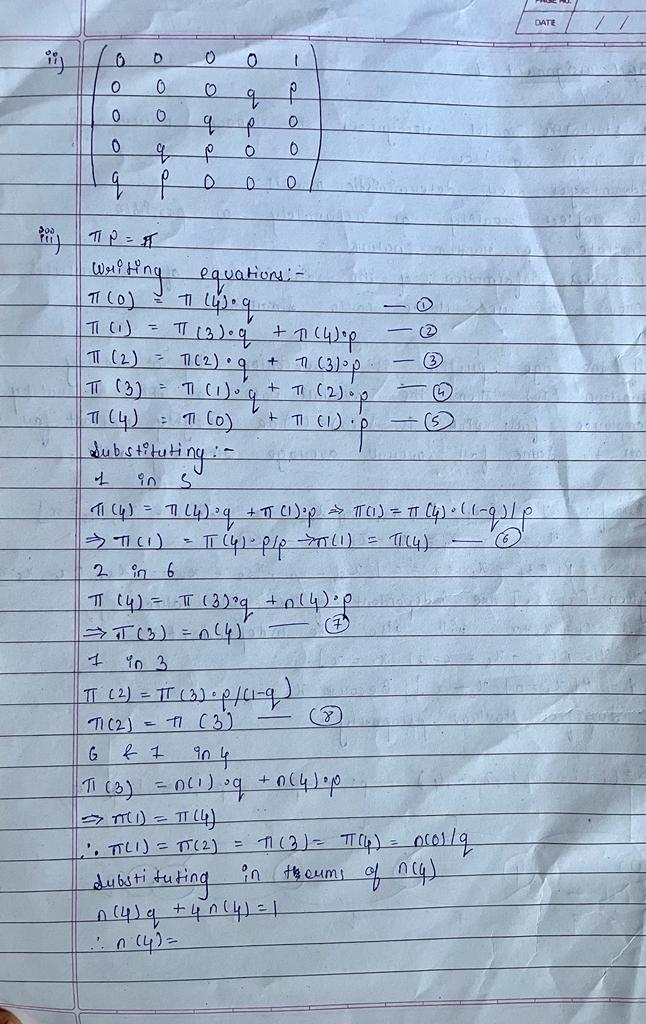 PAGE NO.
DATE / /
ii) 0 0 0 0 1
0 0 0 q p
0 0 q p 0
0 q p 0 0
q p 0 0 0
iii) π P = π
Writing equations:-
π(0) = π(4)·q — ①
π(1) = π(3)·q + π(4)·p — ②
π(2) = π(2)·q + π(3)·p — ③
π(3) = π(1)·q + π(2)·p — ④
π(4) = π(0) + π(1)·p — ⑤
Substituting:-
1 in 5
π(4) = π(4)·q + π(1)·p ⇒ π(1) = π(4)·(1-q)/p
⇒ π(1) = π(4)·p/p → π(1) = π(4) — ⑥
2 in 6
π(4) = π(3)·q + π(4)·p
⇒ π(3) = π(4) — ⑦
7 in 3
π(2) = π(3)·p/(1-q)
π(2) = π(3) — ⑧
6 & 7 in 4
π(3) = π(1)·q + π(4)·p
⇒ π(1) = π(4)
∴ π(1) = π(2) = π(3) = π(4) = π(0)/q
Substituting in terms of π(4)
π(4)q + 4π(4) = 1
∴ π(4) =